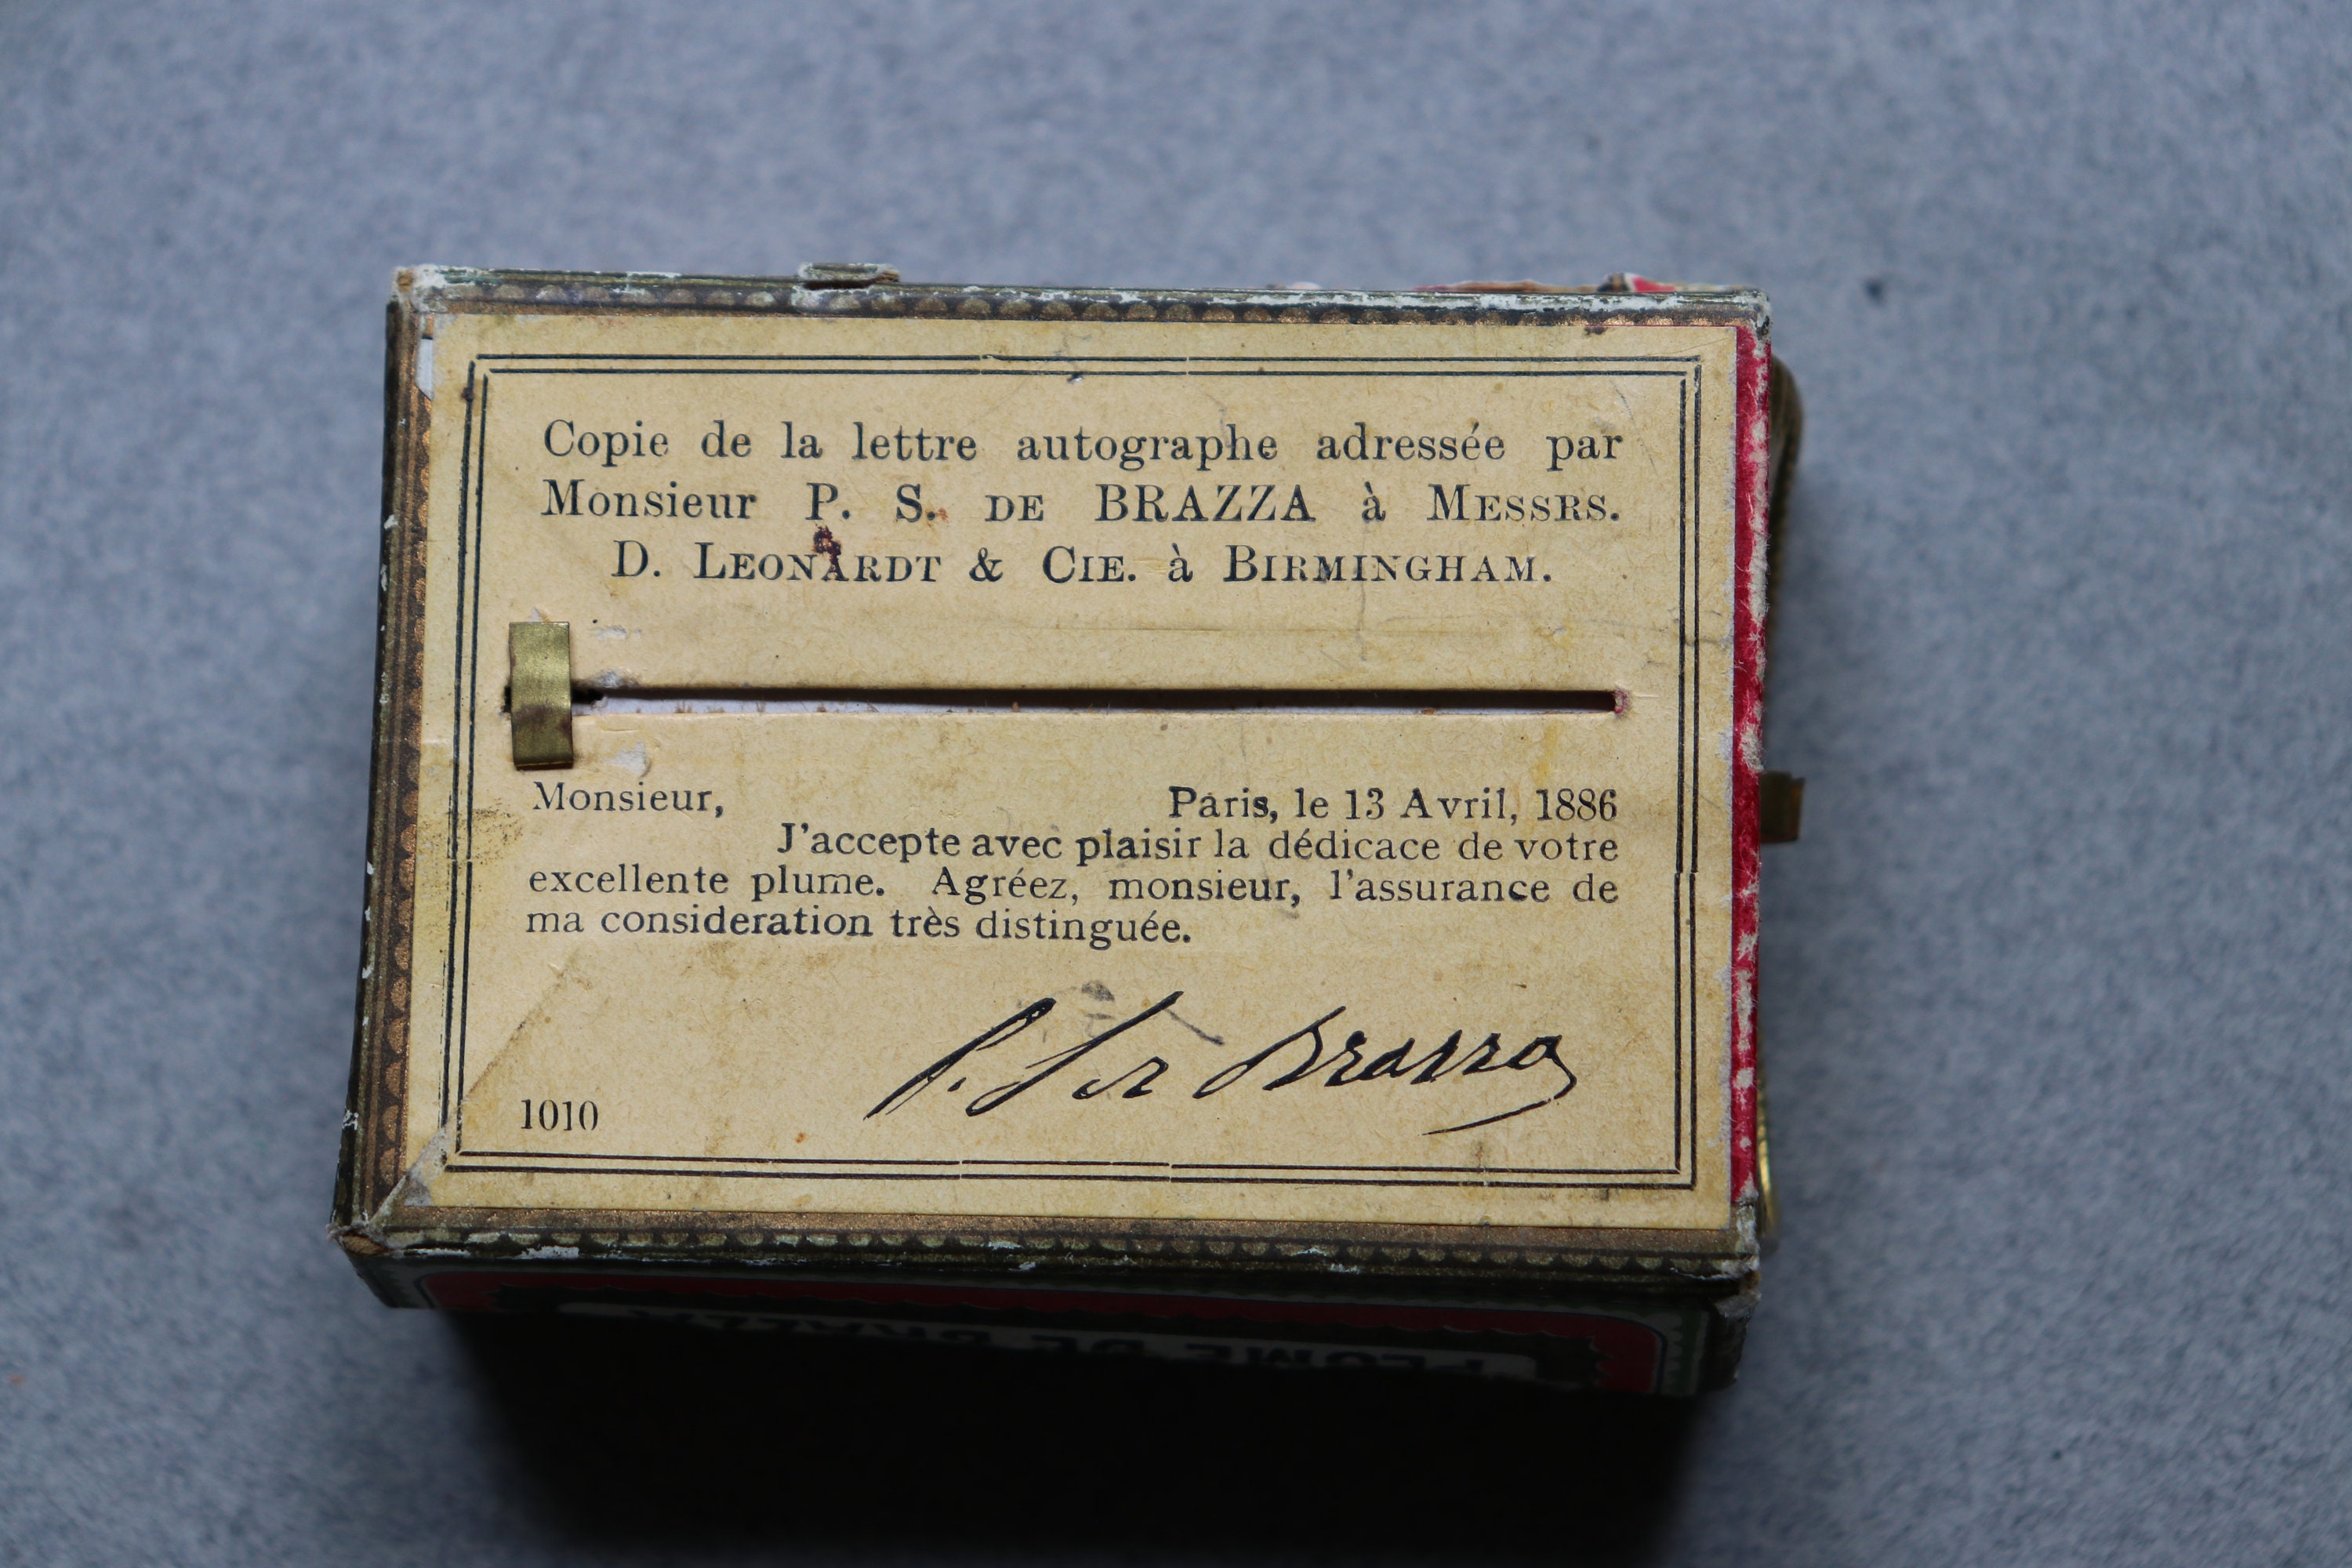 Copie de la lettre autographe adressée par
Monsieur P. S. DE BRAZZA à MESSRS.
D. LEONARDT & CIE. à BIRMINGHAM.
Monsieur, Paris, le 13 Avril, 1886
J'accepte avec plaisir la dédicace de votre
excellente plume. Agréez, monsieur, l'assurance de
ma consideration très distinguée.
P. S. de Brazza
1010
PLUME DE BRAZZA